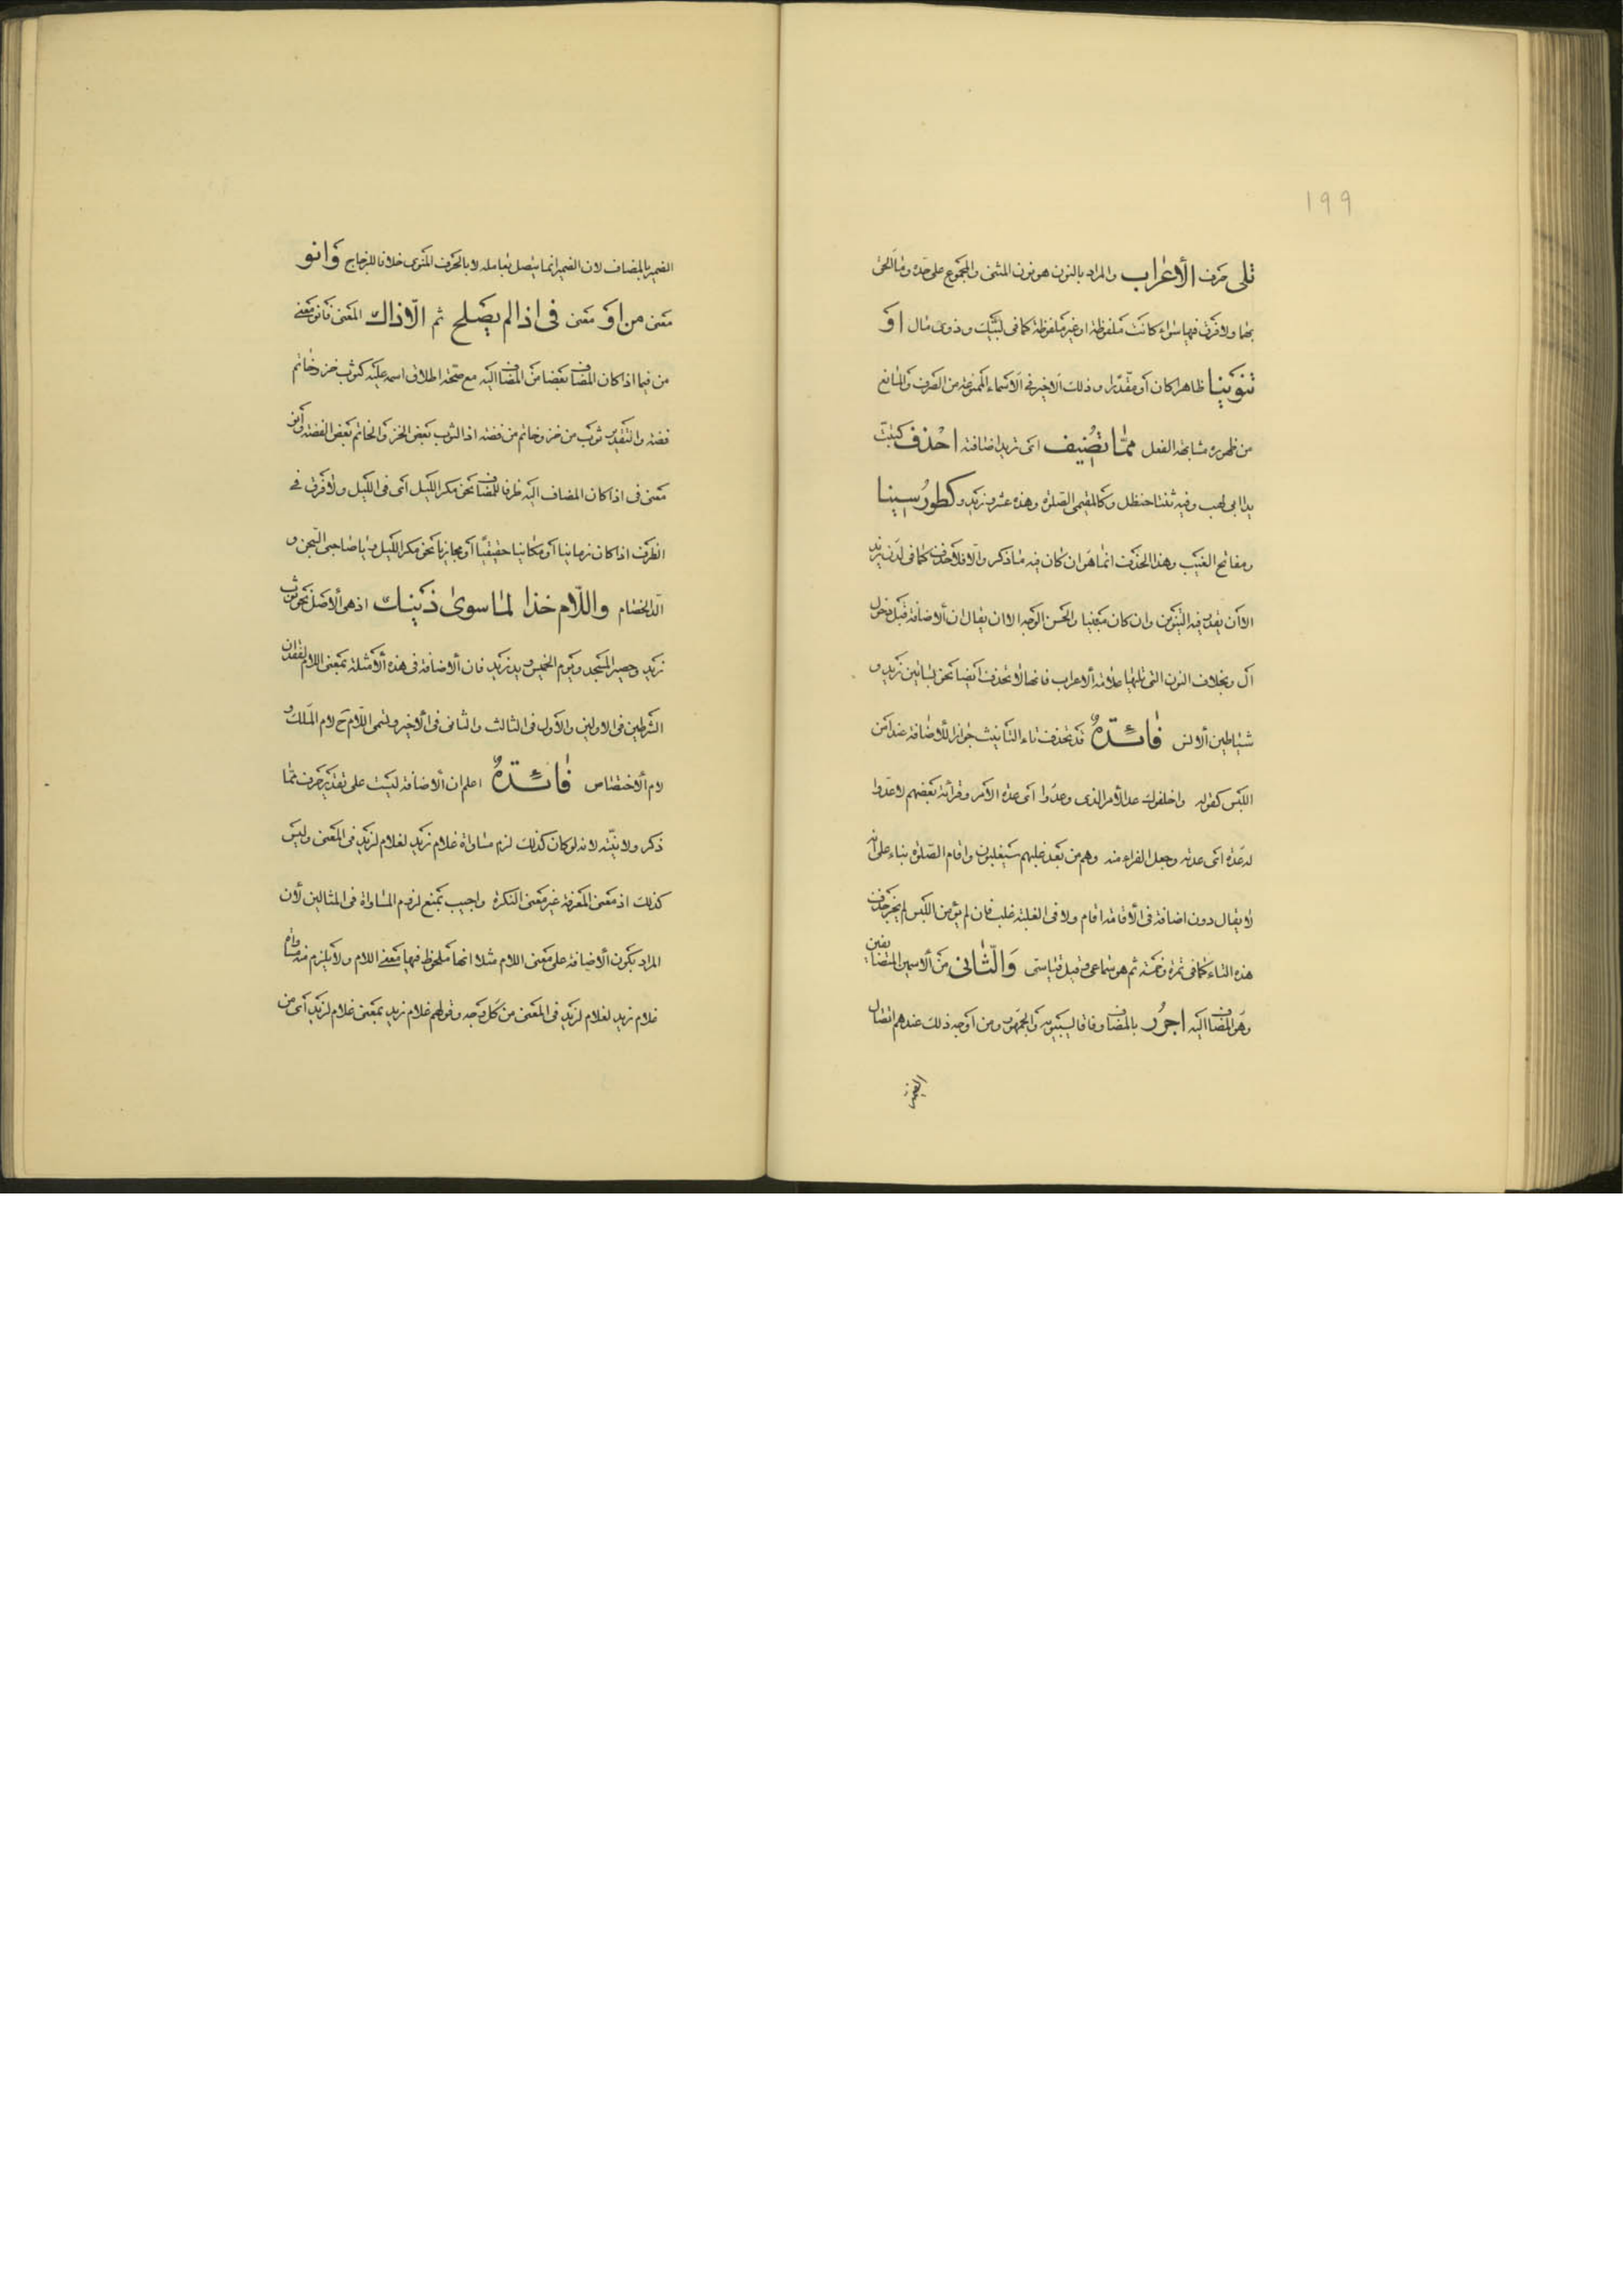 ١٩٩
تلى حرف الأعراب والمراد بالنون هو نون المثنى والمجموع على حده وما الحق
بها ولا فرق فيها سواء كانت ملفوظة او غير ملفوظة كما فى لبيك وذوى مال او
تنوينا ظاهرا كان أو مقدرا وذلك الاخير فى الأسماء الممنوعة من الصرف والمانع
من ظهوره مشابهة الفعل مما تضيف اى تريد اضافته احذف كتبت
يدا ابى لهب وفيه ثنتا حنظل وكالمقيمى الصلوة وهذه عشرو زيد وكطور سينا
ومفاتح الغيب وهذا الحذف انما هو ان كان فيه ما ذكر والا فلا حذف كما فى لدن زيد
الا أن يقدر فيه التنوين وان كان مبنيا والحسن الوجه الا ان يقال ان الاضافة قبل دخول
ال وبخلاف النون التى تليها علامة الاعراب فانها لا تحذف ايضا نحو بساتين زيد و
شياطين الأنس فائدة قد تحذف تاء التأنيث جوازا للأضافة عند امن
اللبس كقوله واخلفوك عد الأمر الذى وعدوا اى عدة الأمر وقرائة بعضهم لاعدوا
له عدة اى عدته وجعل الفراء منه وهم من بعد غلبهم سيغلبون واقام الصلوة بناء على انه
لا يقال دون اضافة فى الأقامة اقام ولا فى الغلبة غلب فان لم يؤمن اللبس لم يجز حذف
هذه التاء كما فى تمرة وخمسة ثم هو سماعى وقيل قياسى والثانى من الأسمين المتضايفين
وهو المضاف اليه اجرر بالمضاف وفاقا لسيبويه والجمهور ومن اوجه ذلك عندهم اتصال
الضمير
الضمير بالمضاف لان الضمير انما يتصل بعامله لا بالحرف المنوى خلافا للزجاج وانو
معنى من او معنى فى اذا لم يصلح ثم الا ذاك المعنى فانو معنى
من فيما اذا كان المضاف بعضا من المضاف اليه مع صحة اطلاق اسمه عليه كثوب خز وخاتم
فضة والتقدير ثوب من خز وخاتم من فضة اذ الثوب بعض الخز والخاتم بعض الفضة وانو
معنى فى اذا كان المضاف اليه ظرفا للمضاف نحو مكر الليل اى فى الليل ولا فرق فى
الظرف اذا كان زمانيا او مكانيا حقيقيا او مجازيا نحو مكر الليل ويا صاحبى السجن و
الد الخصام واللام خذا لما سوى ذينك اذ هى الأصل نحو ثوب
زيد وحصير المسجد ويوم الخميس ويد زيد فان الأضافة فى هذه الأمثلة بمعنى اللام لفقدان
الشرطين فى الاولين والأول فى الثالث والثانى فى الأخير وتسمى اللام ح لام الملك و
لام الأختصاص فائدة اعلم ان الأضافة ليست على تقدير حرف مما
ذكر ولا نيته لانه لو كان كذلك لزم مساواة غلام زيد لغلام لزيد فى المعنى وليس
كذلك اذ معنى المعرفة غير معنى النكرة واجيب بمنع لزوم المساواة فى المثالين لأن
المراد بكون الأضافة على معنى اللام مثلا انها ملحوظ فيها معنى اللام ولا يلزم منه مساواة
غلام زيد لغلام لزيد فى المعنى من كل وجه وقولهم غلام زيد بمعنى غلام لزيد اى من